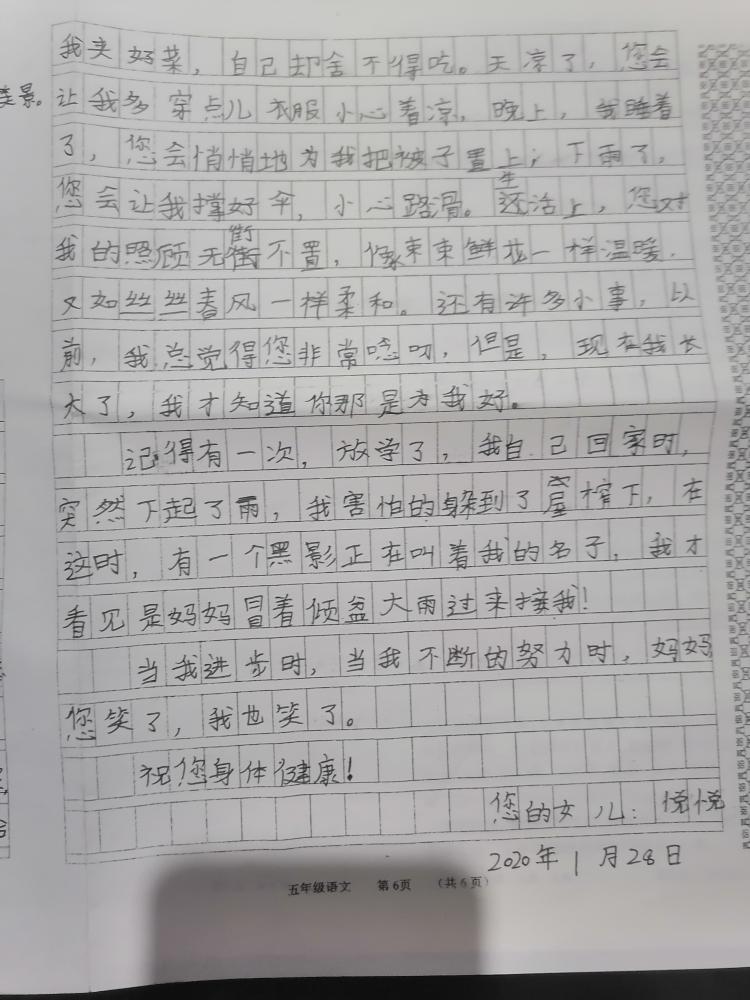 我夹好菜，自己却舍不得吃。天凉了，您会
类景。
让我多穿点儿衣服小心着凉，晚上，我睡着
了，您会悄悄地为我把被子置上；下雨了，
您会让我撑好伞，小心路滑。生活上，您对
我的照顾无微不置，像束束鲜花一样温暖，
又如丝丝春风一样柔和。还有许多小事，以
前，我总觉得您非常唸叨，但是，现在我长
大了，我才知道你那是为我好。
记得有一次，放学了，我自己回家时，
突然下起了雨，我害怕的躲到了屋榨下，在
这时，有一个黑影正在叫着我的名子，我才
看见是妈妈冒着倾盆大雨过来接我！
当我进步时，当我不断的努力时，妈妈
您笑了，我也笑了。
祝您身体健康！
您的女儿：悦悦
2020年1月28日
五年级语文 第6页 （共6页）